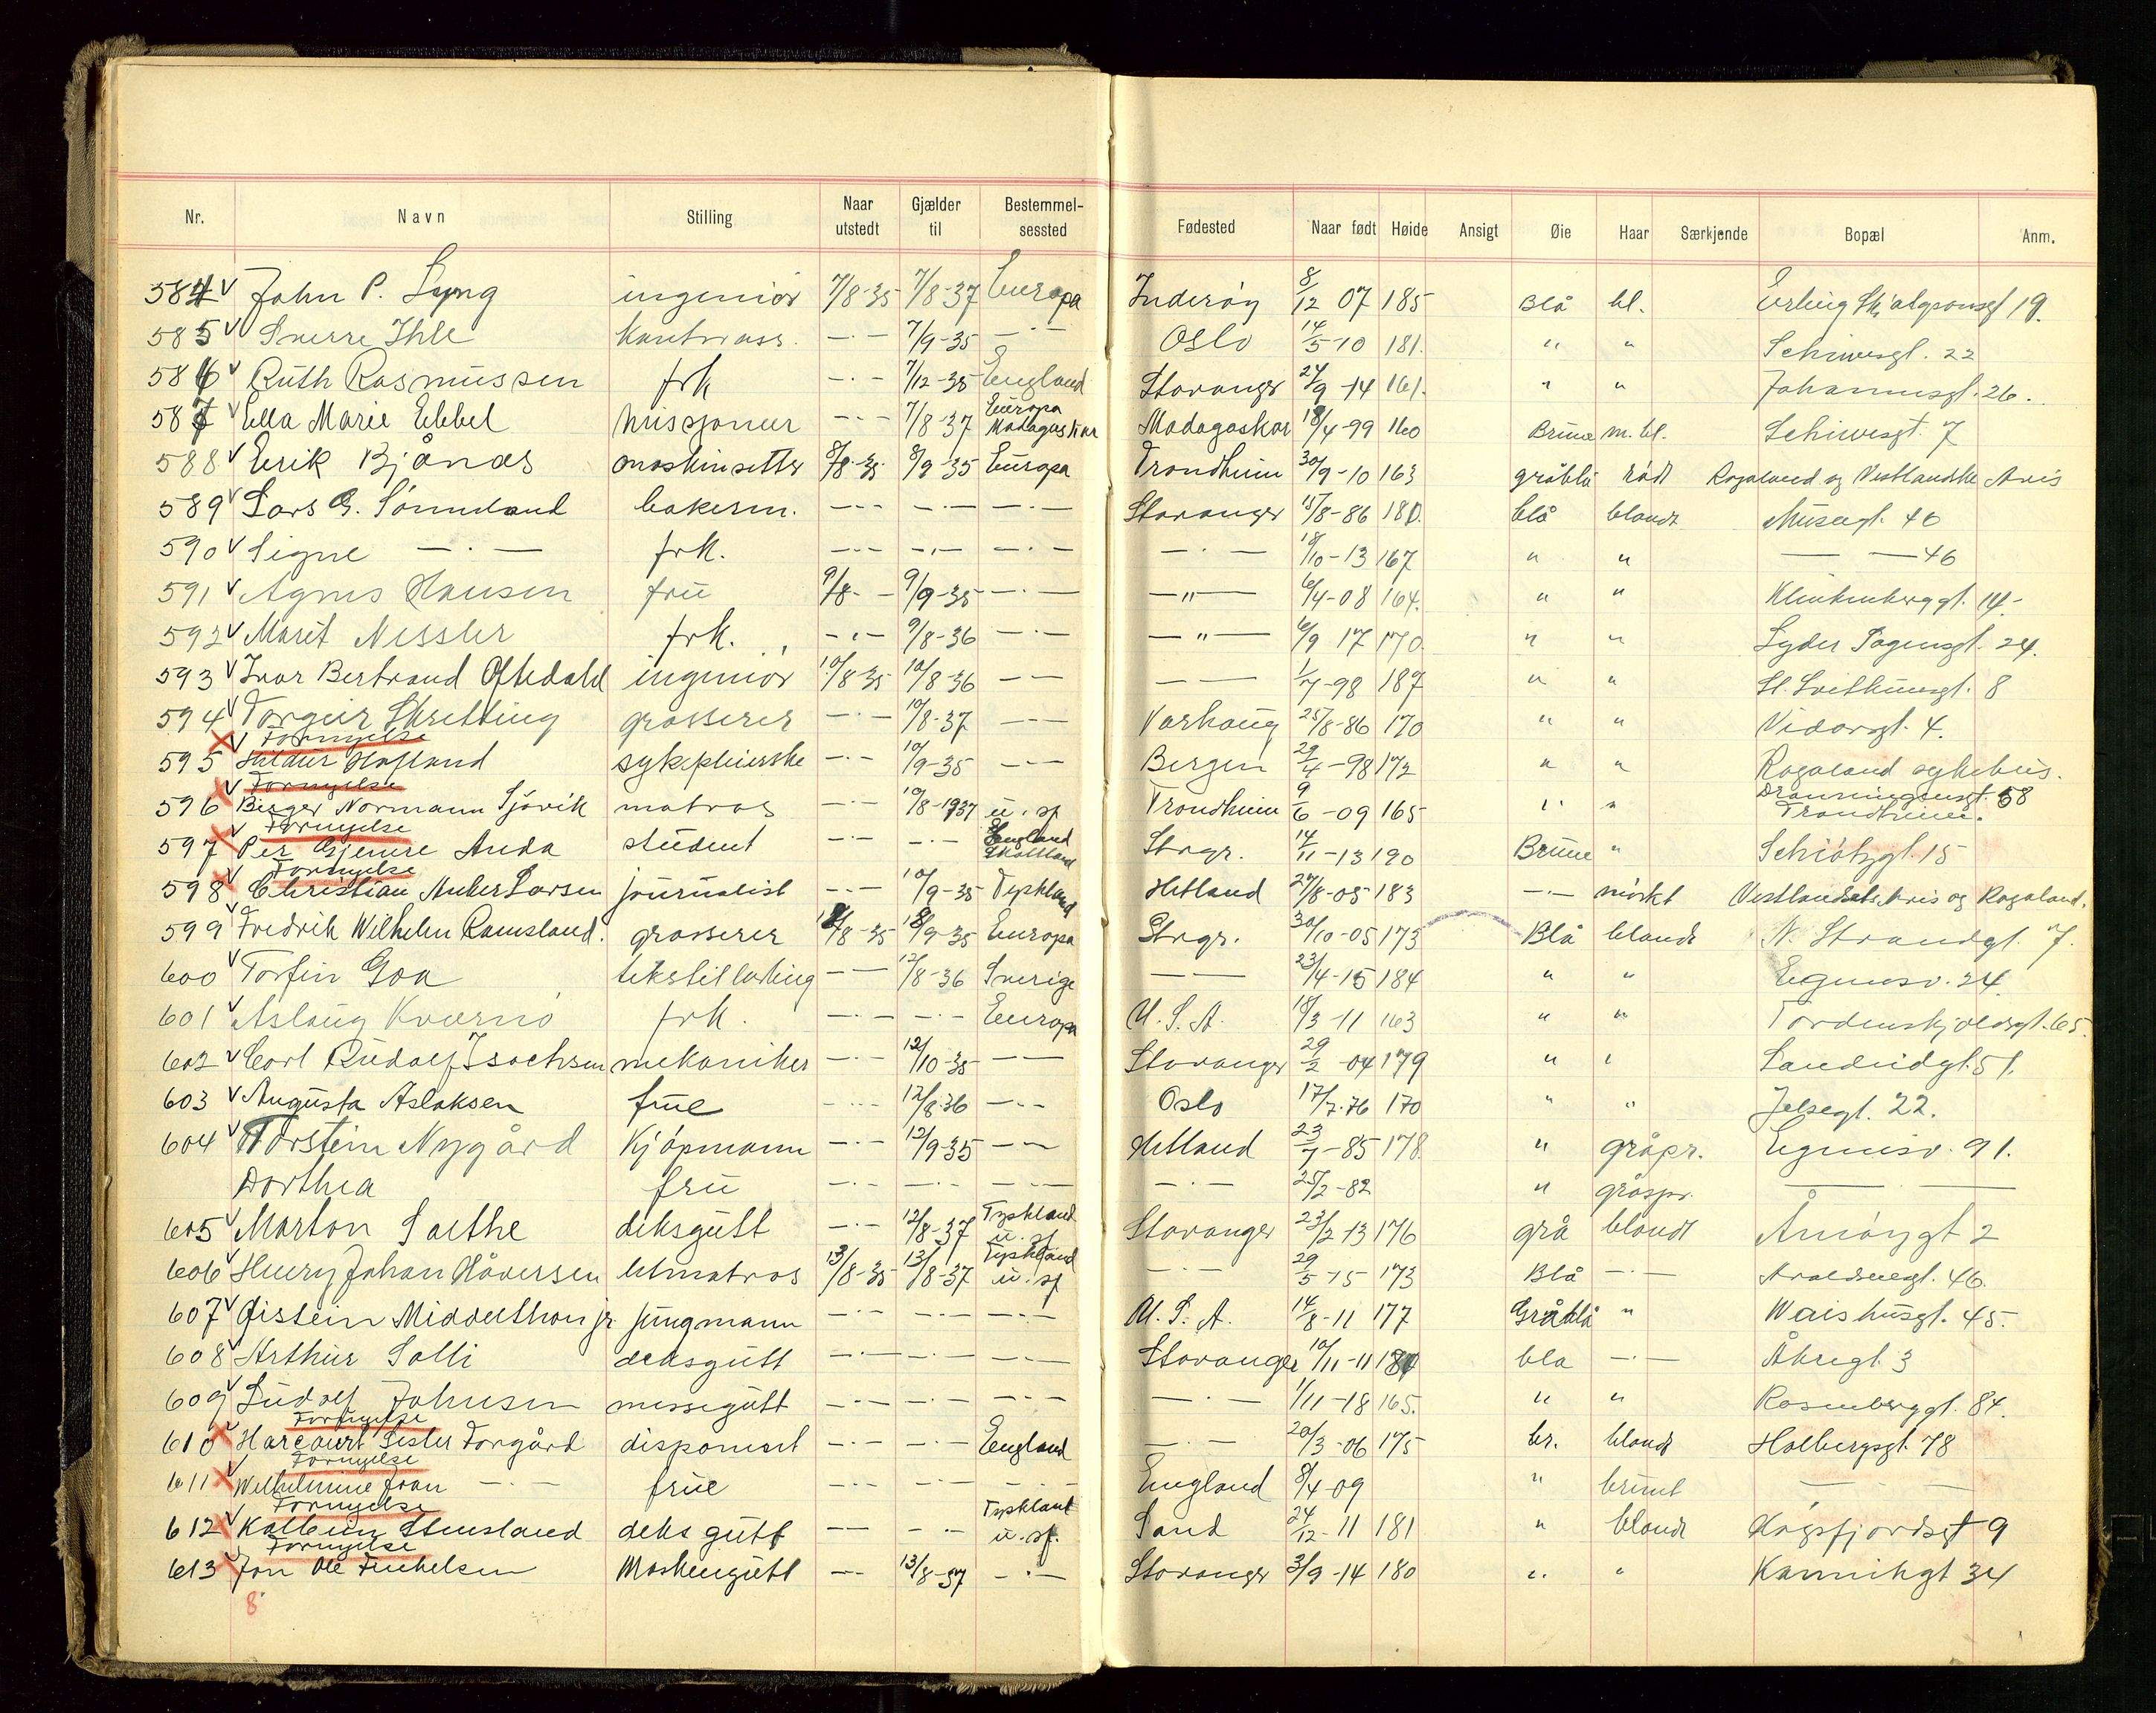 Nr. Navn Stilling Naar utstedt Gjælder til Bestemmelsessted Fødested Naar født Høide Ansigt Øie Haar Særkjende Bopæl Anm.
584 v John P. Lyng ingeniør 7/8-35 7/8-37 Europa Inderøy 8/12 07 185 Blå bl. Erling Skjalgsonsgt 19.
585 v Sverre Ihle Kontorass. -·- 7/9-35 -·- Oslo 14/5-10 181. " " Schiwesgt. 22
586 v Ruth Rasmussen frk -·- 7/12-35 England Stavanger 24/9-14 161. " " Johannesgt. 26.
587 v Ella Marie Ebbel missjonær -·- 7/8-37 Europa Madagaskar Madagaskar 18/4-99 160 Brune m.bl. Schiwesgt. 7
588 v Erik Bjånes maskinsetter 8/8-35 8/9-35 Europa Trondheim 30/9-10 163 gråblå rødt Rogaland og Vestlandske Avis
589 v Lars G. Sømmland bakerm. -·- -·- -·- Stavanger 15/8-86 180. blå blondt Muségt. 46
590 v Signe -·- frk. -·- -·- -·- -·- 18/10-13 167 " " — — 46
591 v Agnes Hansen frü 9/8- - 9/9-35 -·- -"- 6/4-08 164. " " Klinkenberggt. 14-
592 v Marit Nessler frk. -·- 9/8-36 -·- -"- 6/9 17 170. " " Lyder Sagensgt. 24.
593 v Ivar Bertrand Oftedahl ingeniør 10/8-35 10/8-36 -- -- 1/7-98 187 " " St. Svithunsgt. 8
594 v Torgeir Skretting grosserer -·- 10/8-37 --- Varhaug 25/8-86 170 " " Vidarsgt. 4.
v Fornyelse
595 Hildur Hafland sykepleierske -·- 10/9-35 --- Bergen 29/4-98 172 " " Rogaland sykehus.
v Fornyelse
596 Birger Normann Sjøvik matros -·- 10/8-1937 u. sj Trondheim 9/6-09 165 " " Dronningensgt. 58 Trondheim.
v Fornyelse
597 Per Gjemre Anda student -·- -·- England Skottland Stvgr. 14/11-13 190 Brune " Schiøtzgt. 15
v Fornyelse
598 Christian Anker Larsen journalist -·- 10/9-35 Tyskland Hetland 27/8-05 183 -·- mørkt Vestlandske Avis og Rogaland.
599 v Fredrik Wilhelm Ramsland. grosserer 12/8-35 12/9-35 Europa Stvgr. 30/10-05 173 Blå blondt N. Strandgt. 7.
600 v Torfin Goa tekstillærling -- 12/8-36 Sverige -- 23/4-15 184 " " Egenesv. 24.
601 v Aslaug Kvernø frk. -·- -·- Europa U.S.A. 18/3-11 163 " " Tordenskjoldsgt. 65.
602 v Carl Rudolf Isachsen mekaniker -·- 12/10-35 -- Stavanger 29/2-04 179 " " Sandeidgt. 51.
603 v Augusta Aslaksen frue -·- 12/8.36 -·- Oslo 17/7.76 170 " " Jelsegt. 22.
604 v Torstein Nygård Kjøpmann -·- 12/9-35 -- Hetland 23/7-85 178. " gråspr. Egenesv. 91.
Dorthea frü -·- -·- -·- -·- 25/2-82 " gråspr. -·-
605 v Morton Sæthe deksgutt -·- 12/8-37 Tyskland u. sj Stavanger 23/2 13 176 grå blondt Åmøygt 2
606 v Henry Johan Håversen letmatros 13/8-35 13/8-37 Tyskland u. sj -·- 29/5-15 173 Blå -·- Avaldsnesgt. 46.
607 v Øistein Middelthon jr. jungmann -·- -·- -·- U.S.A. 14/8-11 177 Gråblå " Waishusgt. 45.
608 v Arthur Solli deksgutt -·- -·- -·- Stavanger 10/11-11 180 blå -·- Åkregt. 3
609 v Ludolf Johnsen messegutt -·- -·- -·- -·- 1/11-18 165. " " Rosenberggt. 84.
v Fornyelse
610 Harcourt Lester Torgård disponent -·- -·- England -·- 20/3-06 175 br. blondt Holbergsgt. 78
v Fornyelse
611 Wilhelmine Joan -·- frue -·- -·- -·- England 8/4-09 " brunt — —
v Fornyelse
612 Kolbein Stensland deksgutt -- -·- Tyskland u. sj. Sand 24/12-11 181 " blondt Høgsfjordsgt 9
v Fornyelse
613 Jon Ole Finkelsen Maskengutt -- 13/8-37 -·- Stavanger 3/9-14 180 " " Kannikgt 34
8